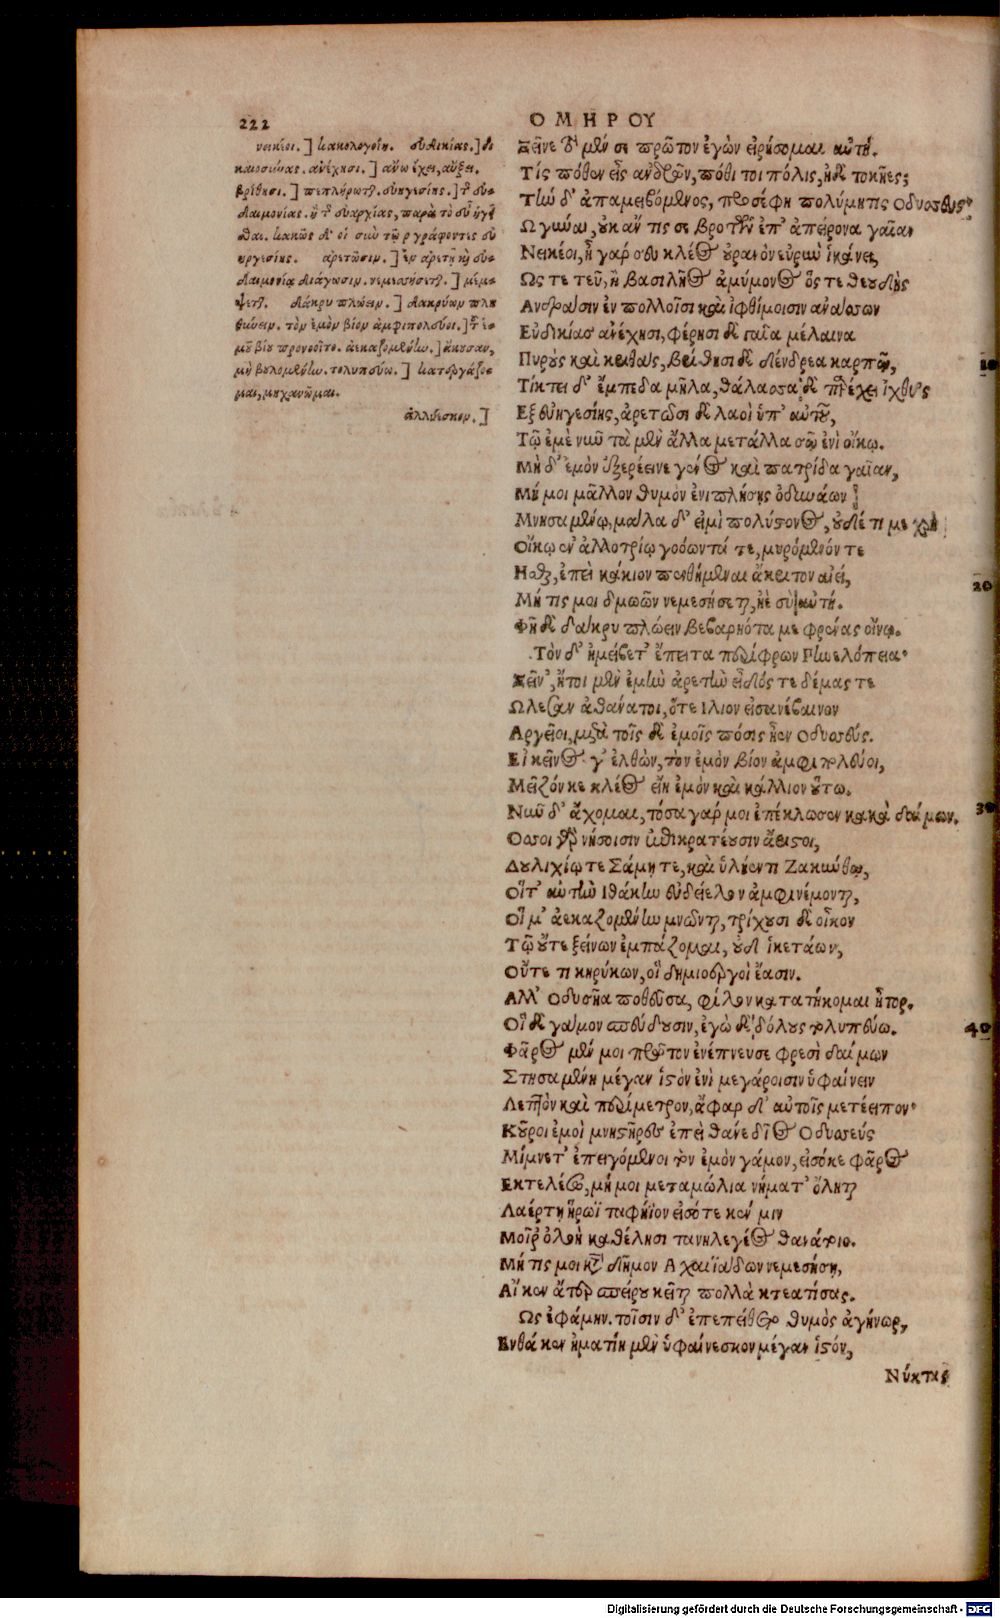 222
ΟΜΗΡΟΥ
νεικέοι.] κακολογοίη. εὐδικίας.] δι
καιοσύνας. ἀνέχησι.] ἄνω ἔχει, αὔξει.
βρίθησι.] πεπλήρωται. εὐηγεσίης.] τῆς εὐ-
δαιμονίας. ἢ τῆς εὐαργίας, παρὰ τὸ εὖ ἡγεῖ
σθαι. κακῶς δὲ οἱ σὺν τῷ ρ γράφοντες εὐ
εργεσίης. ἀρετῶσιν.] ἐν ἀρετῇ καὶ εὐ-
δαιμονίᾳ διάγωσιν. νεμεσήσεται.] μέμ-
ψεται. δάκρυ πλώειν.] δακρύων πλη
θύνειν. τὸν ἐμὸν βίον ἀμφιπολεύοι.] τοῦ ἐ-
μοῦ βίου προνοοῖτο. ἀεκαζομένην.] ἄκουσαν,
μὴ βουλομένην. τολυπεύω.] κατεργάζο-
μαι, μηχανῶμαι.
ἀλλύεσκον.]
Ξεῖνε τὸ μέν σε πρῶτον ἐγὼν εἰρήσομαι αὐτή.
Τίς πόθεν εἶς ἀνδρῶν, πόθι τοι πόλις, ἠδὲ τοκῆες;
Τὴν δ' ἀπαμειβόμενος, προσέφη πολύμητις Ὀδυσσεύς·
Ω γύναι, οὐκ ἄν τίς σε βροτῶν ἐπ' ἀπείρονα γαῖαν
Νεικέοι, ἦ γάρ σευ κλέος οὐρανὸν εὐρὺν ἱκάνει,
Ως τε τεῦ, ἢ βασιλῆος ἀμύμονος ὅς τε θεουδὴς
Ανδράσιν ἐν πολλοῖσι καὶ ἰφθίμοισιν ἀνάσσων
Εὐδικίας ἀνέχησι, φέρησι δὲ γαῖα μέλαινα
Πυροὺς καὶ κριθάς, βρίθησι δὲ δένδρεα καρπῷ,
Τίκτει δ' ἔμπεδα μῆλα, θάλασσα δὲ παρέχει ἰχθῦς
Εξ εὐηγεσίης, ἀρετῶσι δὲ λαοὶ ὑπ' αὐτοῦ,
Τῷ ἐμὲ νῦν τὰ μὲν ἄλλα μετάλλα σῷ ἐνὶ οἴκῳ.
Μὴ δ' ἐμὸν ἐξερέεινε γένος καὶ πατρίδα γαῖαν,
Μή μοι μᾶλλον θυμὸν ἐνιπλήσῃς ὀδυνάων
Μνησαμένῳ, μάλα δ' εἰμὶ πολύστονος, οὐδέ τί με χρὴ
Οἴκῳ ἐν ἀλλοτρίῳ γοόωντά τε, μυρόμενόν τε
Ησθαι, ἐπεὶ κάκιον πενθήμεναι ἄκριτον αἰεί,
Μή τίς μοι δμωῶν νεμεσήσεται, ἠὲ σὺ αὐτή.
Φῆ δὲ δάκρυ πλώειν βεβαρηότα με φρένας οἴνῳ.
Τὸν δ' ἠμείβετ' ἔπειτα περίφρων Πηνελόπεια·
Ξεῖν', ἤτοι μὲν ἐμὴν ἀρετὴν εἶδός τε δέμας τε
Ωλεσαν ἀθάνατοι, ὅτε Ἴλιον εἰσανέβαινον
Αργεῖοι, μετὰ τοῖς δὲ ἐμοῖς πόσις ἦεν Ὀδυσσεύς.
Εἰ κεῖνος γ' ἐλθὼν, τὸν ἐμὸν βίον ἀμφιπολεύοι,
Μεῖζόν κε κλέος εἴη ἐμὸν καὶ κάλλιον οὕτω.
Νῦν δ' ἄχομαι, τόσα γάρ μοι ἐπέκλωσεν κακὰ δαίμων.
Οσσοι γὰρ νήσοισιν ἐπικρατέουσιν ἄριστοι,
Δουλιχίῳ τε Σάμῃ τε, καὶ ὑλήεντι Ζακύνθῳ,
Οἵτ' αὐτὴν Ἰθάκην εὐδείελον ἀμφινέμονται,
Οἵ μ' ἀεκαζομένην μνῶνται, τρίχουσι δὲ οἶκον
Τῷ οὔτε ξείνων ἐμπάζομαι, οὐδ' ἱκετάων,
Οὔτέ τι κηρύκων, οἳ δημιοεργοὶ ἔασιν.
Αλλ' Ὀδυσῆα ποθεῦσα, φίλον κατατήκομαι ἦτορ.
Οἳ δὲ γάμον σπεύδουσιν, ἐγὼ δὲ δόλους τολυπεύω.
Φᾶρος μέν μοι πρῶτον ἐνέπνευσε φρεσὶ δαίμων
Στησαμένη μέγαν ἱστὸν ἐνὶ μεγάροισιν ὑφαίνειν
Λεπτὸν καὶ περίμετρον, ἄφαρ δ' αὐτοῖς μετέειπον·
Κοῦροι ἐμοὶ μνηστῆρες ἐπεὶ θάνε δῖος Ὀδυσσεύς
Μίμνετ' ἐπειγόμενοι τὸν ἐμὸν γάμον, εἰσόκε φᾶρος
Εκτελέσω, μή μοι μεταμώλια νήματ' ὄληται
Λαέρτῃ ἥρωϊ ταφήϊον εἰσότε κέν μιν
Μοῖρ' ὀλοὴ καθέλησι τανηλεγέος θανάτοιο.
Μή τίς μοι κατὰ δῆμον Ἀχαιϊάδων νεμεσήσῃ,
Αἴ κεν ἄτερ σπείρου κεῖται πολλὰ κτεατίσας.
Ως ἐφάμην. τοῖσιν δ' ἐπεπείθετο θυμὸς ἀγήνωρ,
Ενθά κεν ἠματίη μὲν ὑφαίνεσκον μέγαν ἱστόν,
10
20
30
40
Νύκτας
Digitalisierung gefördert durch die Deutsche Forschungsgemeinschaft - DFG